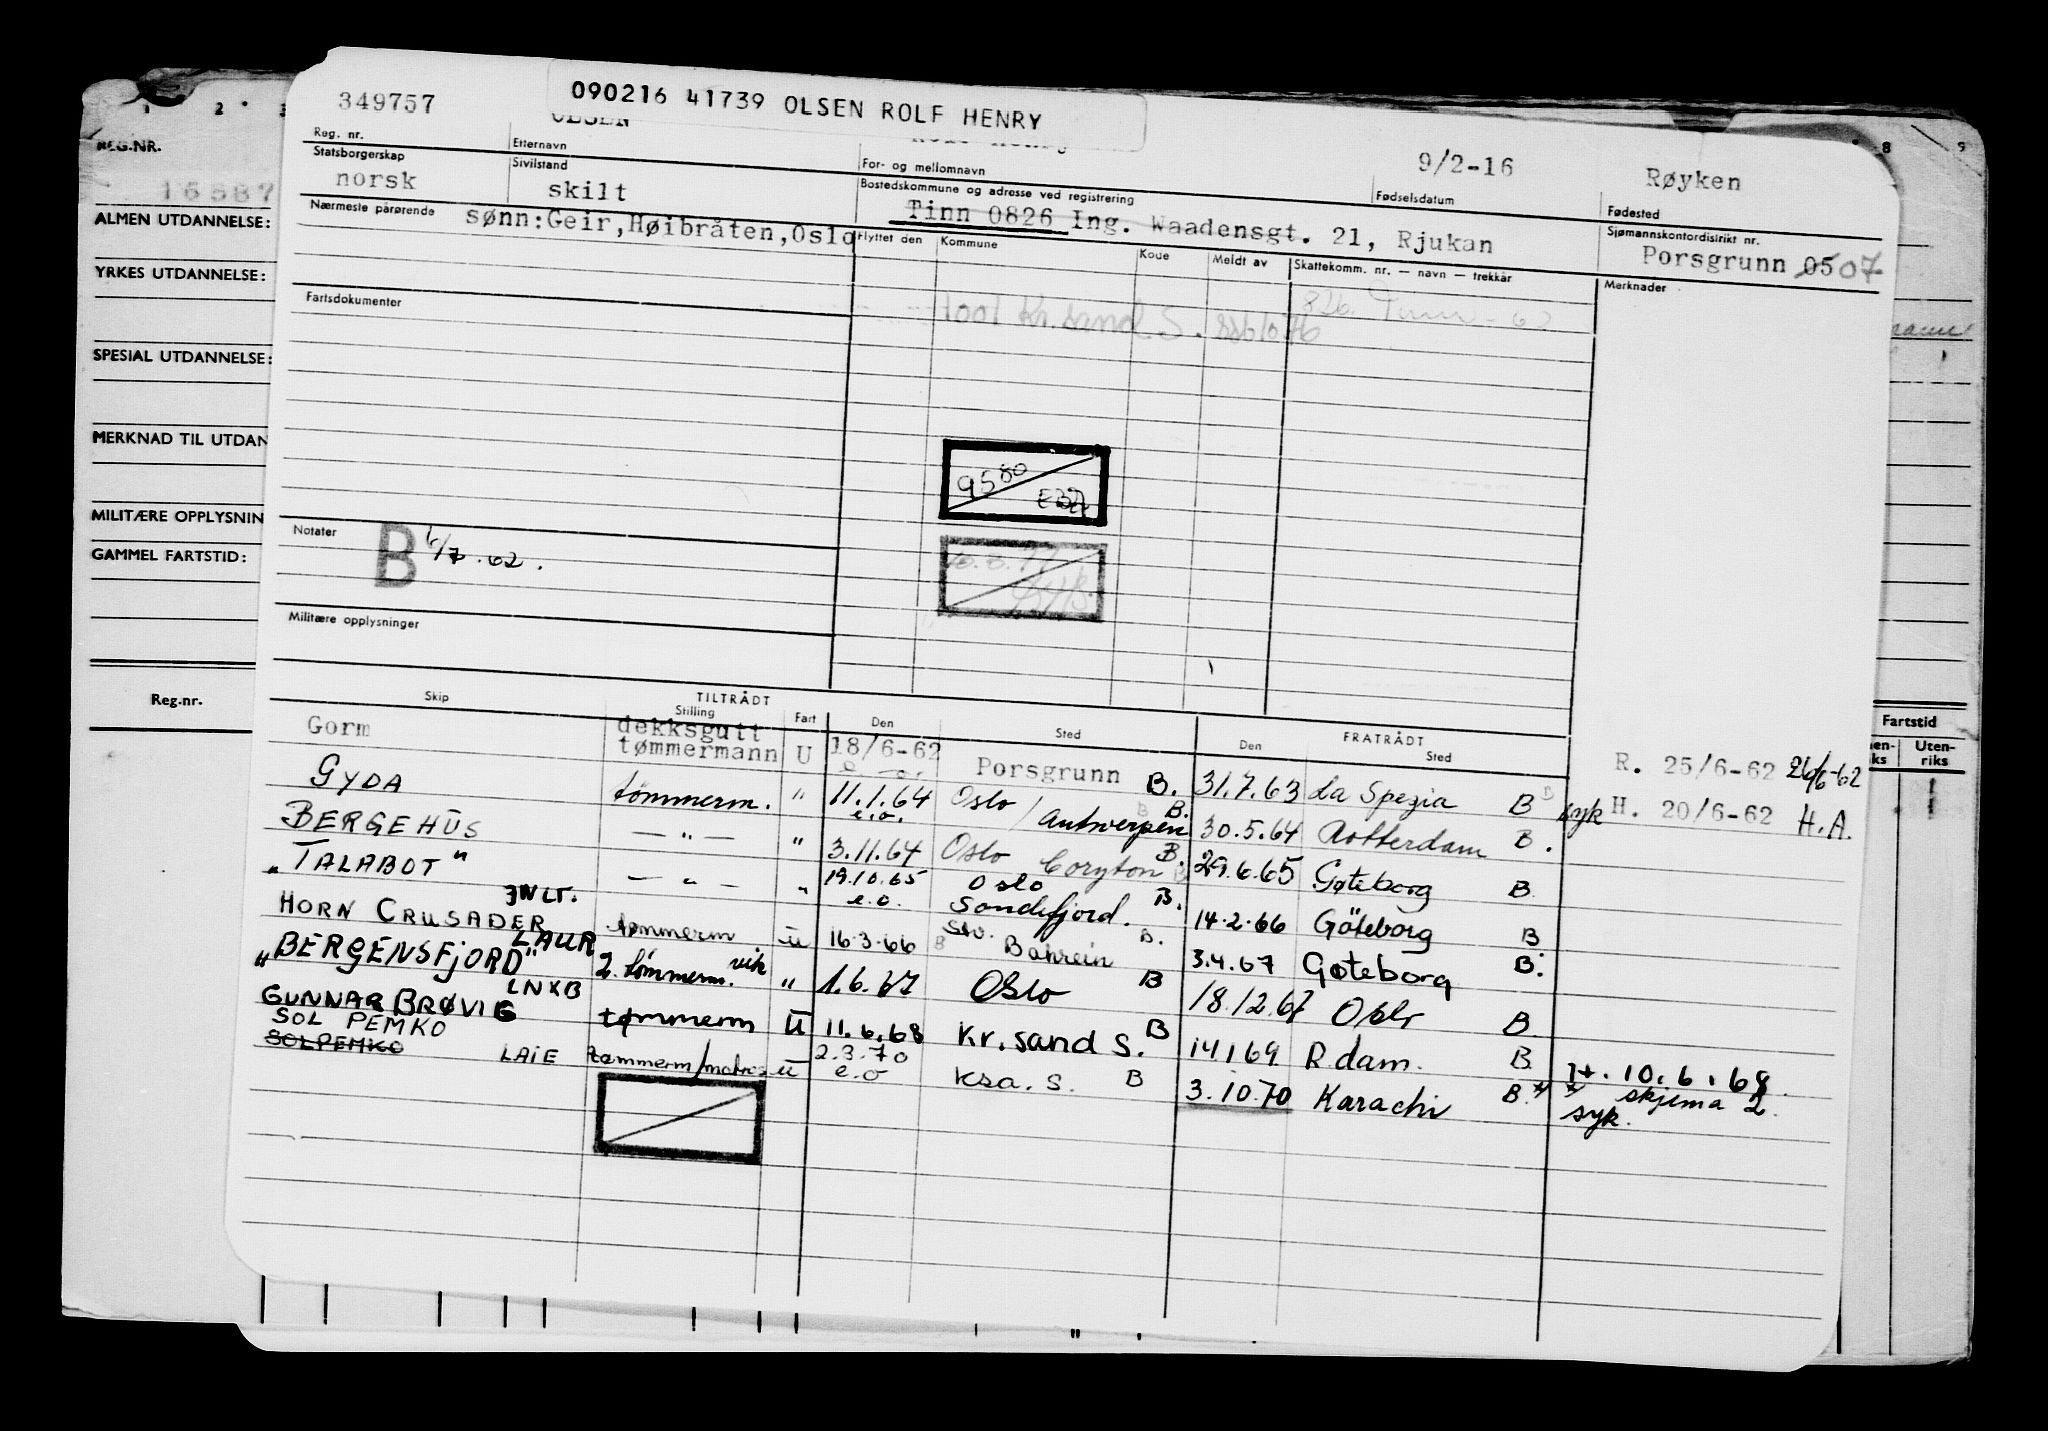 090216 41739 OLSEN ROLF HENRY
349757 OLSEN 9/2-16 Røyken
Reg. nr. Etternavn For- og mellomnavn Fødselsdatum Fødested
Statsborgerskap Sivilstand Bostedskommune og adresse ved registrering Sjømannskontordistrikt nr.
norsk skilt Tinn 0826 Ing. Waadensgt. 21, Rjukan Porsgrunn 05 07
Nærmeste pårørende sønn:Geir,Høibråten,Oslo
Flyttet den Kommune Kode Meldt av Skattekomm. nr. — navn — trekkår Merknader
Fartsdokumenter
1001 Kr.sand S.
9580
Notater B 6/7.62.
Militære opplysninger
Skip TILTRÅDT Stilling Fart Den Sted FRATRÅDT Den Sted
Gorm dekksgutt tømmermann U 18/6-62 Porsgrunn B. 31.7.63 La Spezia B syk
R. 25/6-62 26/6-62
H. 20/6-62 H.A.
GYDA tømmerm. " 11.1.64 e.o. Oslo / Antwerpen B. 30.5.64 Rotterdam B.
BERGEHUS — " — " 3.11.64 Oslo Coryton B. 29.6.65 Gøteborg B
"TALABOT" — " — " 19.10.65 e.o. Oslo Sandefjord. B. 14.2.66 Göteborg B
HORN CRUSADER JWLT. tømmerm U 16.3.66 Bahrein B. 3.4.67 Gøteborg B.
"BERGENSFJORD" LAUR 2. tømmerm. vik " 1.6.67 Oslo B 18.12.67 Oslo B
GUNNAR BRØVIG LNXB tømmerm U 11.6.68 Kr.sand S. B 14169 R.dam. B 10.6.68 skjema 2.
SOL PEMKO
SOLPEMKO LAIE tømmerm/matros U 2.3.70 e.o Ksa. S. B 3.10.70 Karachi B.* * syk.
REG.NR.
16587
ALMEN UTDANNELSE:
YRKES UTDANNELSE:
SPESIAL UTDANNELSE:
MERKNAD TIL UTDAN
MILITÆRE OPPLYSNIN
GAMMEL FARTSTID:
Reg.nr.
Fartstid
Uten-
riks